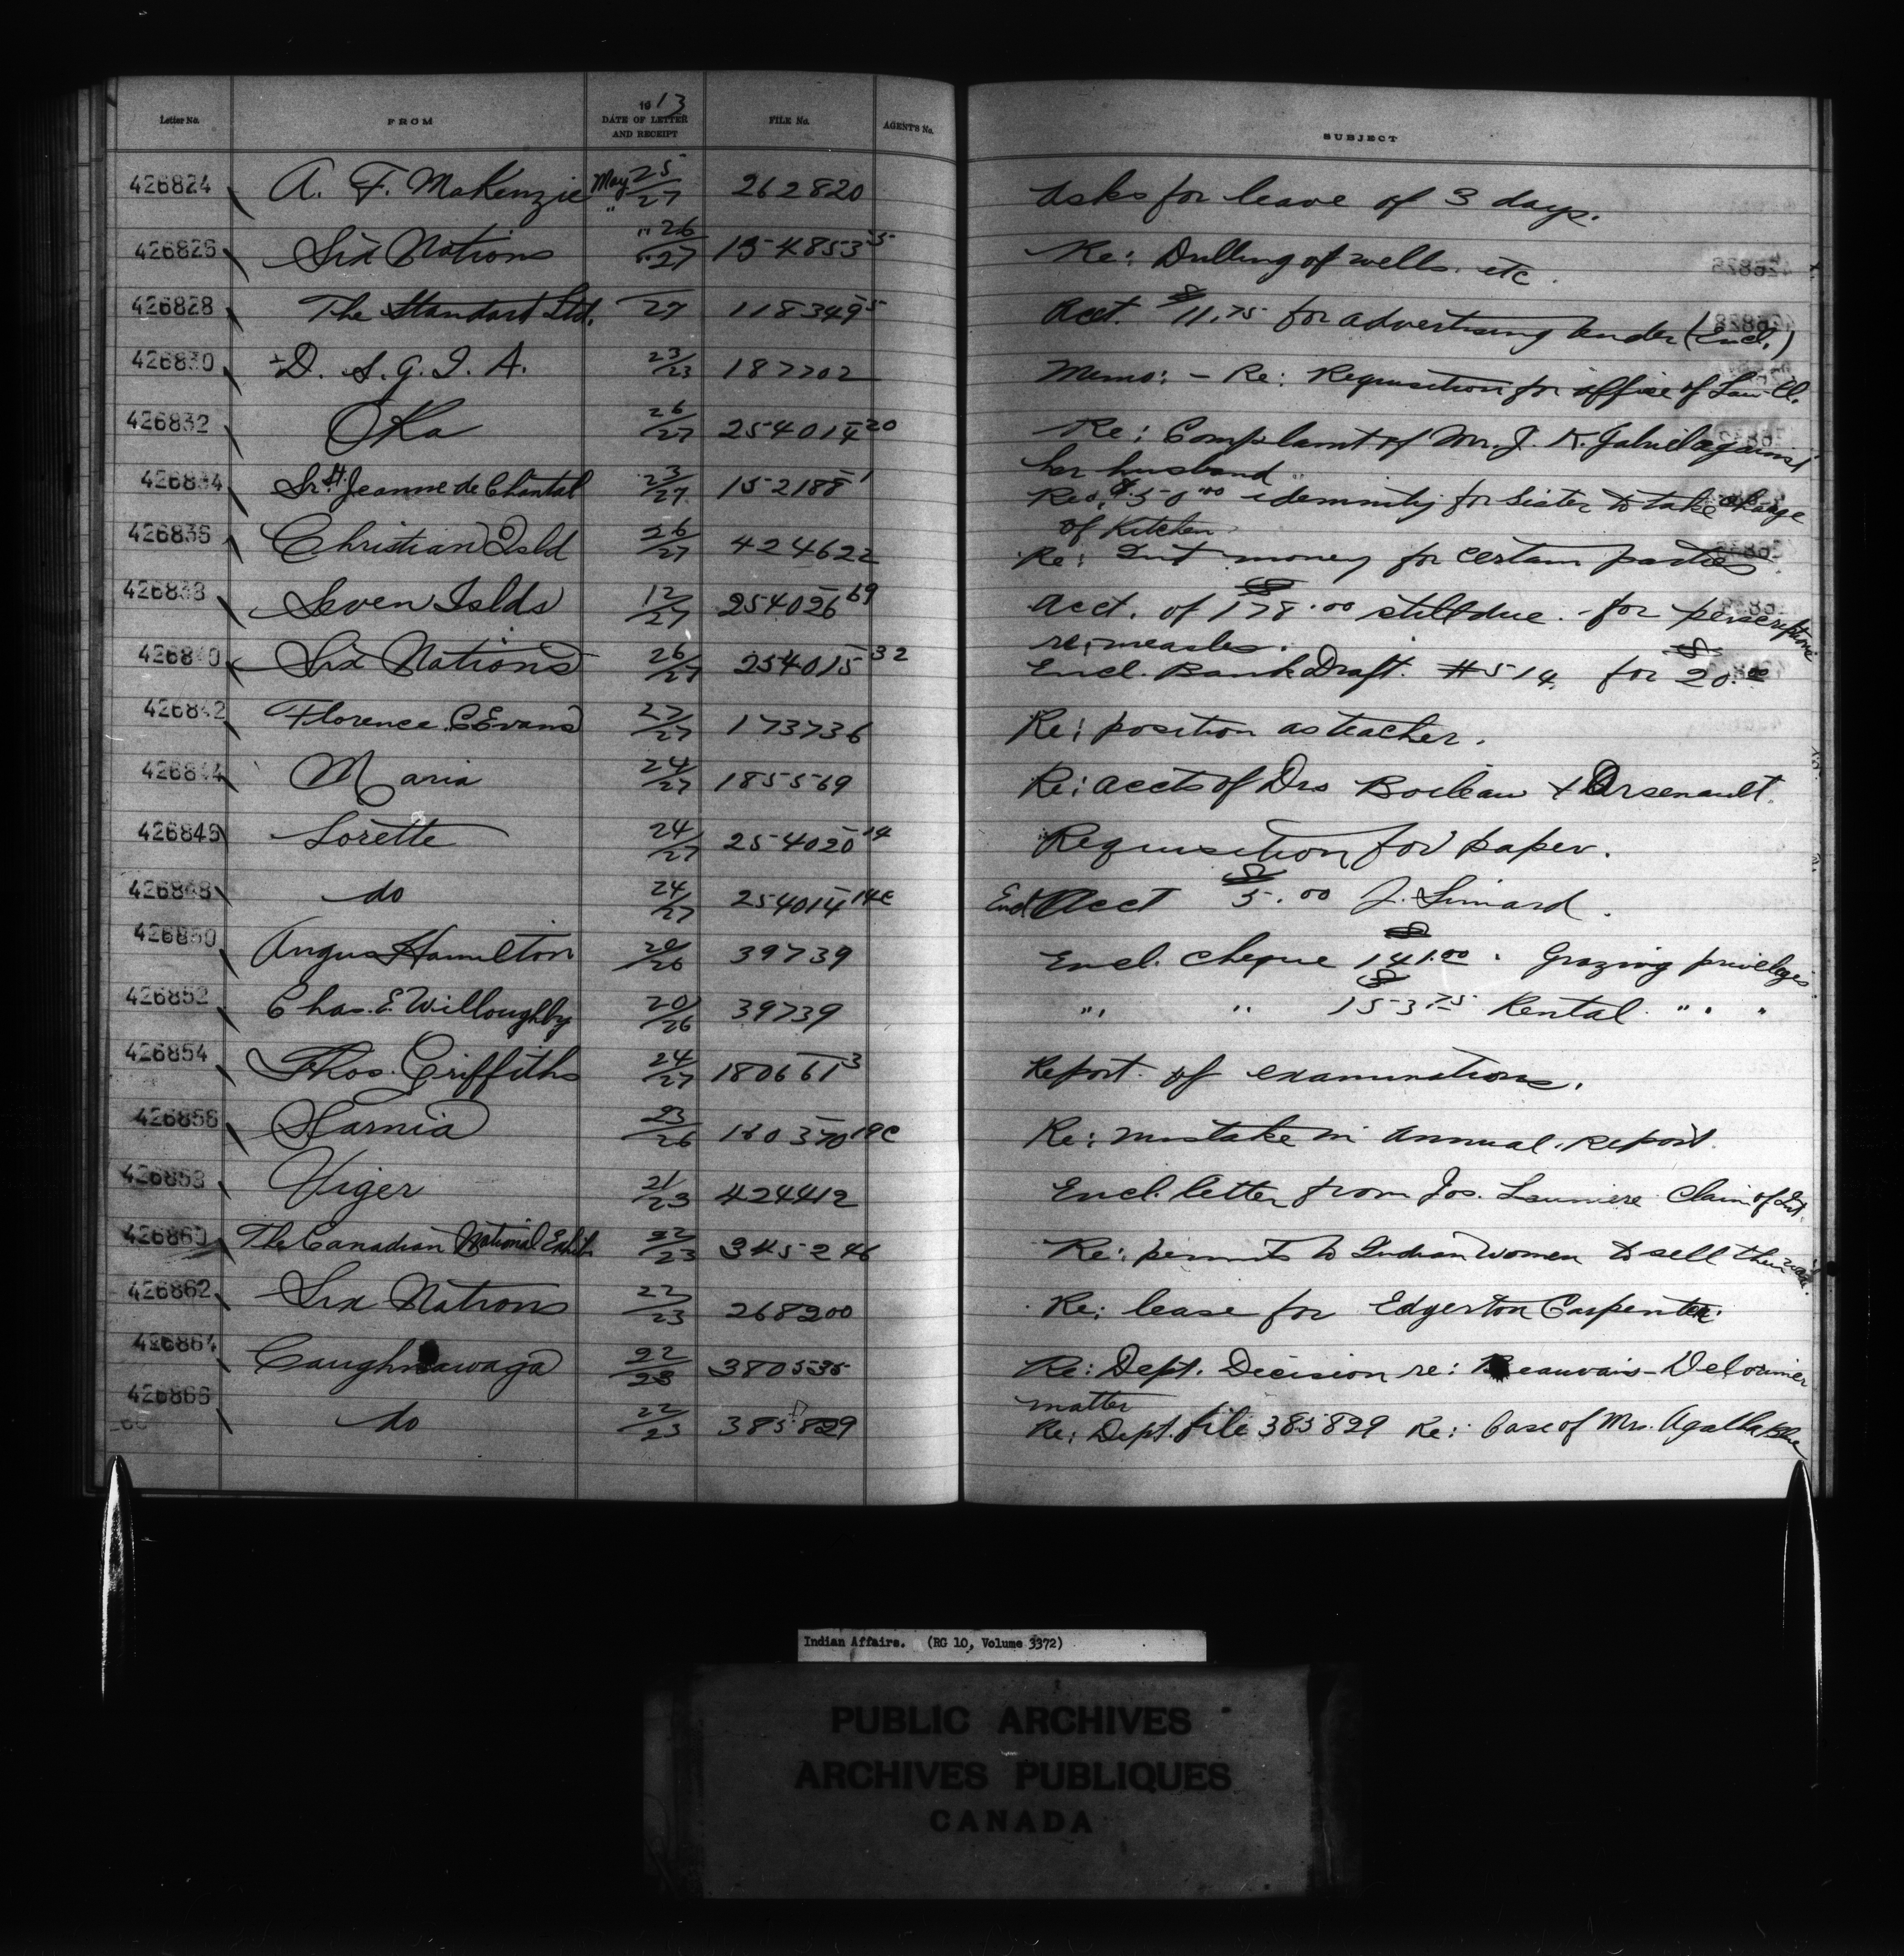 Letter No. FROM 1913 DATE OF LETTER AND RECEIPT FILE No. AGENT'S No. SUBJECT
426824 A. F. MaKenzie May 25/27 262820 Asks for leave of 3 days.
426826 Six Nations " 26/27 154853-5 Re: Drilling of wells. etc.
426828 The Standard Ltd. 27 118349-5 Acct. $11.75 for advertising tender (Encl.)
426830 D. S. G. I. A. 23/23 187702 Memo: - Re: Requisition for office of Law Cl.
426832 Oka 26/27 254014-20 Re: Complaint of Mr. J. K. Gabriel against
her husband
426834 Sr. St. Jeanne de Chantal 23/27 152188-1 $50.00 idemnity for Sister to take charge
of Kitchen
426836 Christian Isld 26/27 424622 Re: Int money for certain parties
426838 Seven Islds 12/27 254026-69 Acct. of $178.00 still due. for
re: measles.
426840 Six Nations 26/27 254015-32 Encl. Bank Draft. #514. for $20.00
426842 Florence C. Evans 27/27 173736 Re: position as teacher.
426844 Maria 24/27 185569 Re: accts of Drs Boileau & Arsenault.
426846 Lorette 24/27 254020-14 Requisition for paper.
426848 do 24/27 254014-14c Encl Acct $5.00 J. Simard.
426850 Angus Hamilton 20/26 39739 Encl. cheque $141.00. Grazing privileges
426852 Chas. E. Willoughby 20/26 39739 " " $153.75 Rental " " "
426854 Thos. Griffiths 24/27 180661-3 Report of examinations.
426856 Sarnia 23/26 160370-19c Re: mistake in annual report.
426858 Viger 21/23 424412 Encl. letter from Jos. Launiere Claim of Int.
426860 The Canadian National Exhib. 22/23 345246 Re: permits to Indian Women to sell their
426862 Six Nations 22/23 268200 Re: lease for Edgerton Carpenter.
426864 Caughnawaga 22/23 380535 Re: Dept. Decision re: Beauvais - Delorimier
matter
426866 do 22/23 385829 Re: Dept. file 385829 Re: Case of Mrs. Agatha Blue
Indian Affairs. (RG 10, Volume 3372)
PUBLIC ARCHIVES
ARCHIVES PUBLIQUES
CANADA